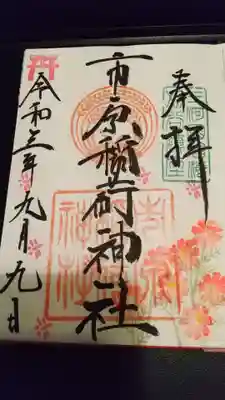 奉拝
市原稲荷神社
令和三年九月九日